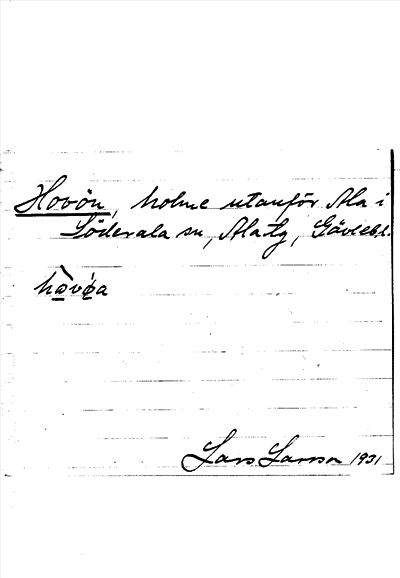 Hovön, holme utanför Ala i
Söderala sn, Ala tg, Gävlebl.
hòvǿa
Lars Larsson 1931